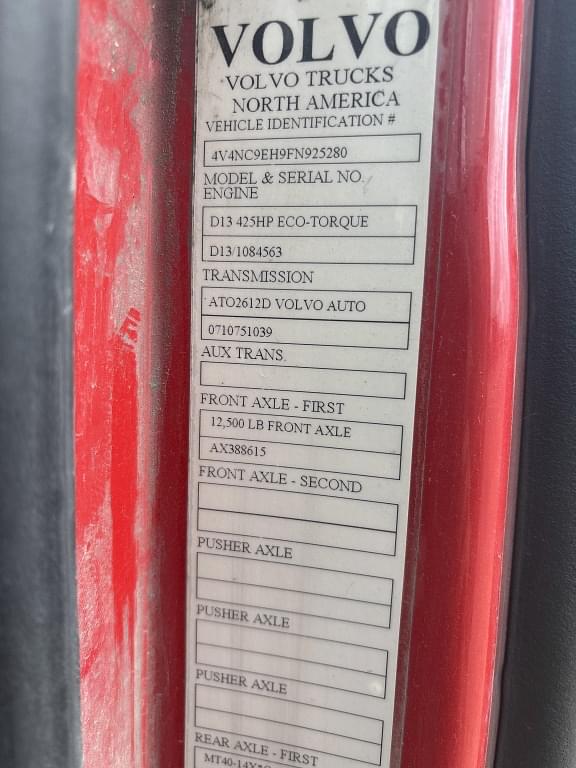 VOLVO
VOLVO TRUCKS
NORTH AMERICA
VEHICLE IDENTIFICATION #
4V4NC9EH9FN925280
MODEL & SERIAL NO.
ENGINE
D13 425HP ECO-TORQUE
D13/1084563
TRANSMISSION
ATO2612D VOLVO AUTO
0710751039
AUX TRANS.
FRONT AXLE - FIRST
12,500 LB FRONT AXLE
AX388615
FRONT AXLE - SECOND
PUSHER AXLE
PUSHER AXLE
PUSHER AXLE
REAR AXLE - FIRST